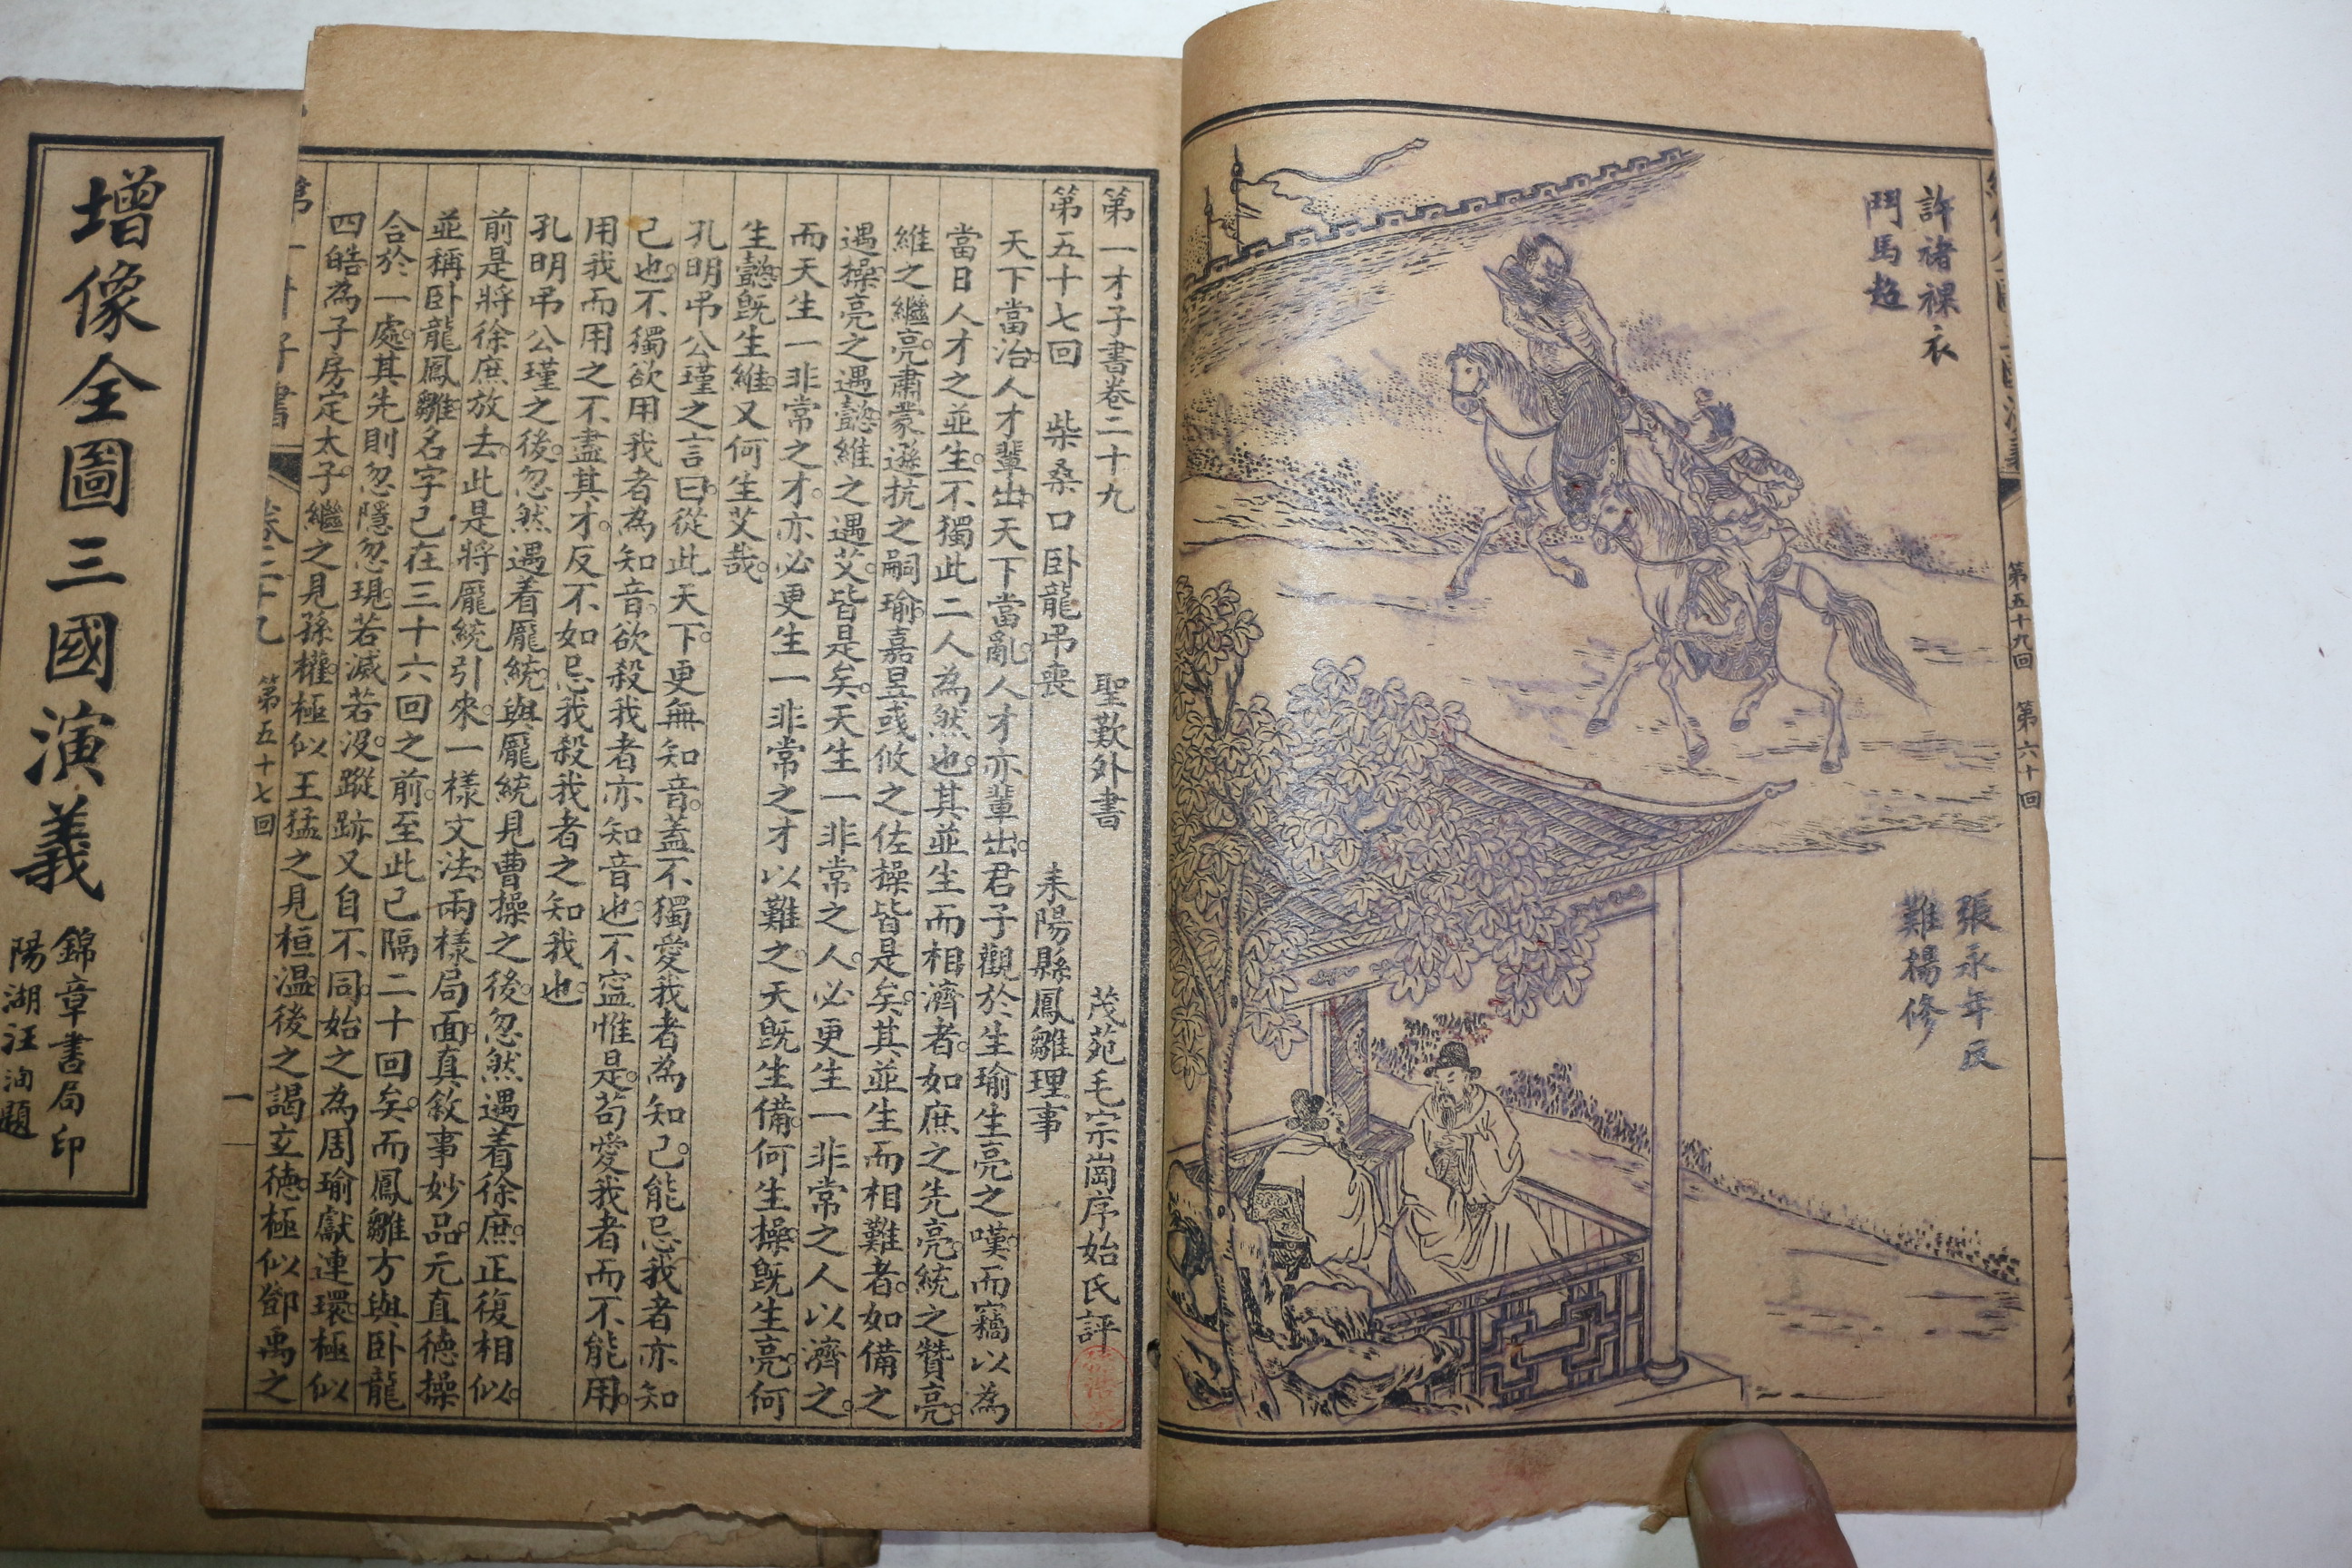 許褚裸衣
鬥馬超
張永年反
難楊修
第五十九回 第六十回
第一才子書卷二十九 聖歎外書 茂苑毛宗崗序始氏評
第五十七回 柴桑口卧龍弔喪 耒陽縣鳳雛理事
天下當治人才輩出天下當亂人才亦輩出君子觀於生瑜生亮之嘆而竊以為
當日人才之並生不獨此二人為然也其並生而相濟者如庶之先亮統之贊亮
維之繼亮肅蒙遜抗之嗣瑜嘉昱彧攸之佐操皆是矣其並生而相難者如備之
遇操亮之遇懿維之遇艾皆是矣天生一非常之人必更生一非常之人以濟之
而天生一非常之才亦必更生一非常之才以難之天既生備何生操既生亮何
生懿既生維又何生艾哉
孔明弔公瑾之言曰從此天下更無知音蓋不獨愛我者為知己能忌我者亦知
己也不獨欲用我者為知音欲殺我者亦知音也不寧惟是苟愛我者而不能用
用我而用之不盡其才反不如忌我殺我者之知我也
孔明弔公瑾之後忽然遇着龐統與龐統見曹操之後忽然遇着徐庶正復相似
前是將徐庶放去此是將龐統引來一樣文法兩樣局面真敘事妙品元直德操
並稱卧龍鳳雛名字已在三十六回之前至此已隔二十回矣而鳳雛方與卧龍
合於一處其先則忽隱忽現若滅若没蹤跡又自不同始之為周瑜獻連環極似
四皓為子房定太子繼之見孫權極似王猛之見桓温後之謁玄德極似鄧禹之
第一才子書 卷二十九 第五十七回 一
增像全圖三國演義
錦章書局印
陽湖汪洵題